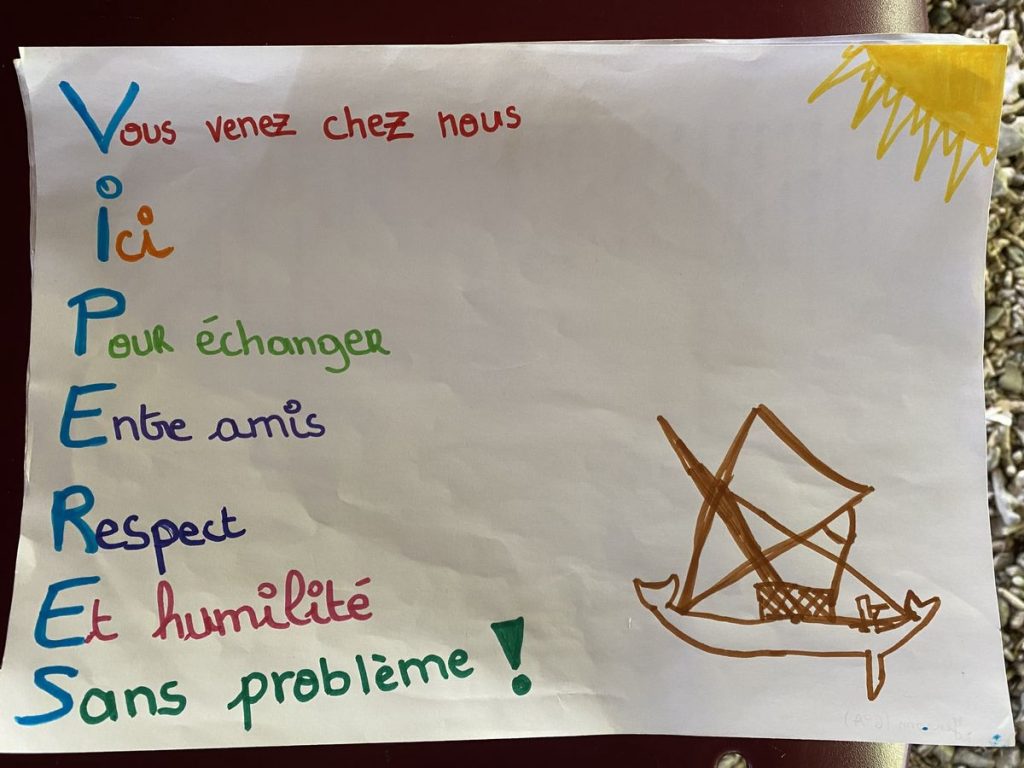 Vous venez chez nous
ici
Pour échanger
Entre amis
Respect
Et humilité
Sans problème !